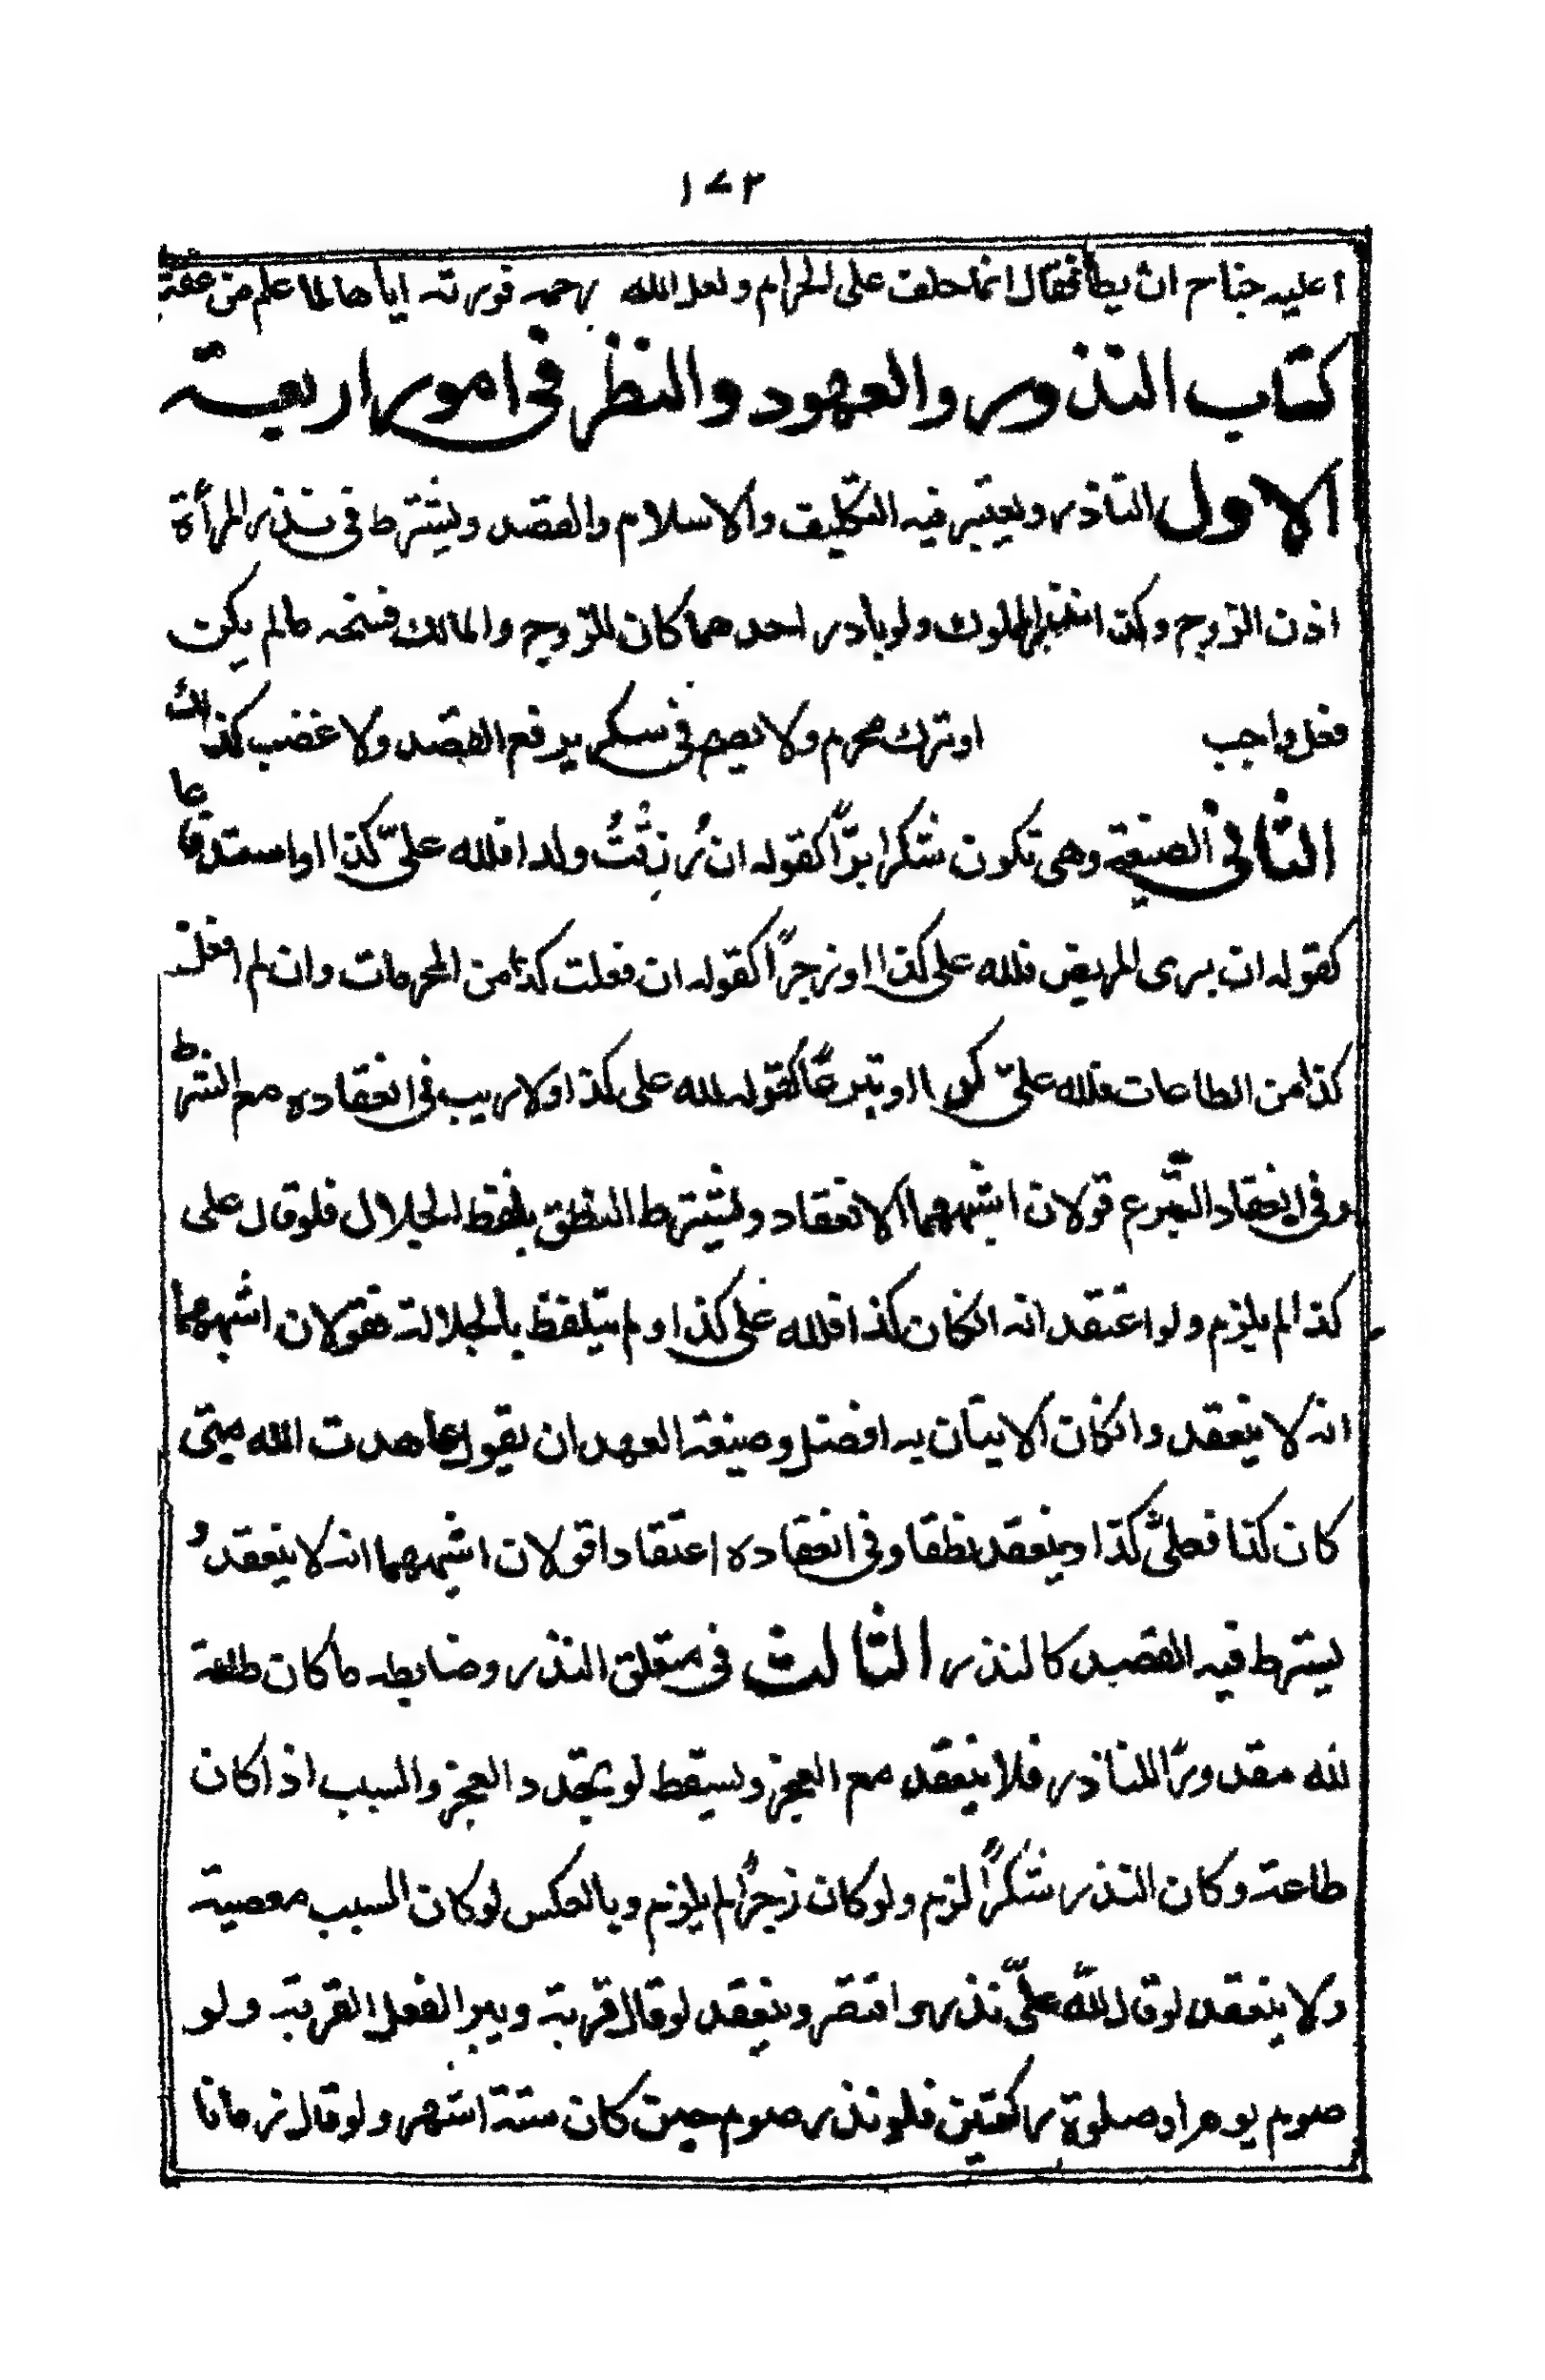 ١٧٢
أعليه جناح ان يطأ فقال انما حلف على الحرام ولعل الله رحمه فورته اياها لما علم من عفته
كتاب النذور والعهود والنظر فى امور اربعة
الاول الناذر ويعتبر فيه التكليف والاسلام والقصد ويشترط فى نذر المرأة
اذن الزوج وكذا نذر المملوك ولو بادر احدهما كان للزوج والمالك فسخه مالم يكن
فعل واجب او ترك محرم ولا يصح فى سكر يرفع القصد ولا غضب كذالك
الثانى الصيغة وهى تكون شكرا برّاً كقوله ان رُزِقْتُ ولدا فلله علىّ كذا او استدفاعا
كقوله ان برى المريض فلله على كذا او زجراً كقوله ان فعلت كذا من المحرمات وان لم افعل
كذا من الطاعات فلله علىّ كذا او تبرعًا كقوله لله على كذا ولا ريب فى انعقاده مع الشرط
وفى انعقاد التبرع قولان اشبههما الانعقاد ويشترط النطق بلفظ الجلال فلو قال على
كذا لم يلزم ولو اعتقد انه انكان كذا فلله على كذا ولم يتلفظ بالجلالة فقولان اشبههما
انه لا ينعقد وانكان الاتيان به افضل وصيغة العهد ان يقول عاهدت الله متى
كان كذا فعلىّ كذا وينعقد نطقا وفى انعقاده اعتقادا قولان اشبههما انه لا ينعقد و
يشترط فيه القصد كالنذر الثالث فى متعلق النذر وضابطه ما كان طاعة
لله مقدورًا للناذر فلا ينعقد مع العجز ويسقط لو تجدد العجز والسبب اذا كان
طاعة وكان النذر شكراً لزم ولو كان زجراً لم يلزم وبالعكس لو كان السبب معصية
ولا ينعقد لو قال لله علىّ نذر واقتصر وينعقد لو قال قربة ويبر الفعل القربة ولو
صوم يوم او صلوة ركعتين فلو نذر صوم حين كان ستة اشهر ولو قال زمانا